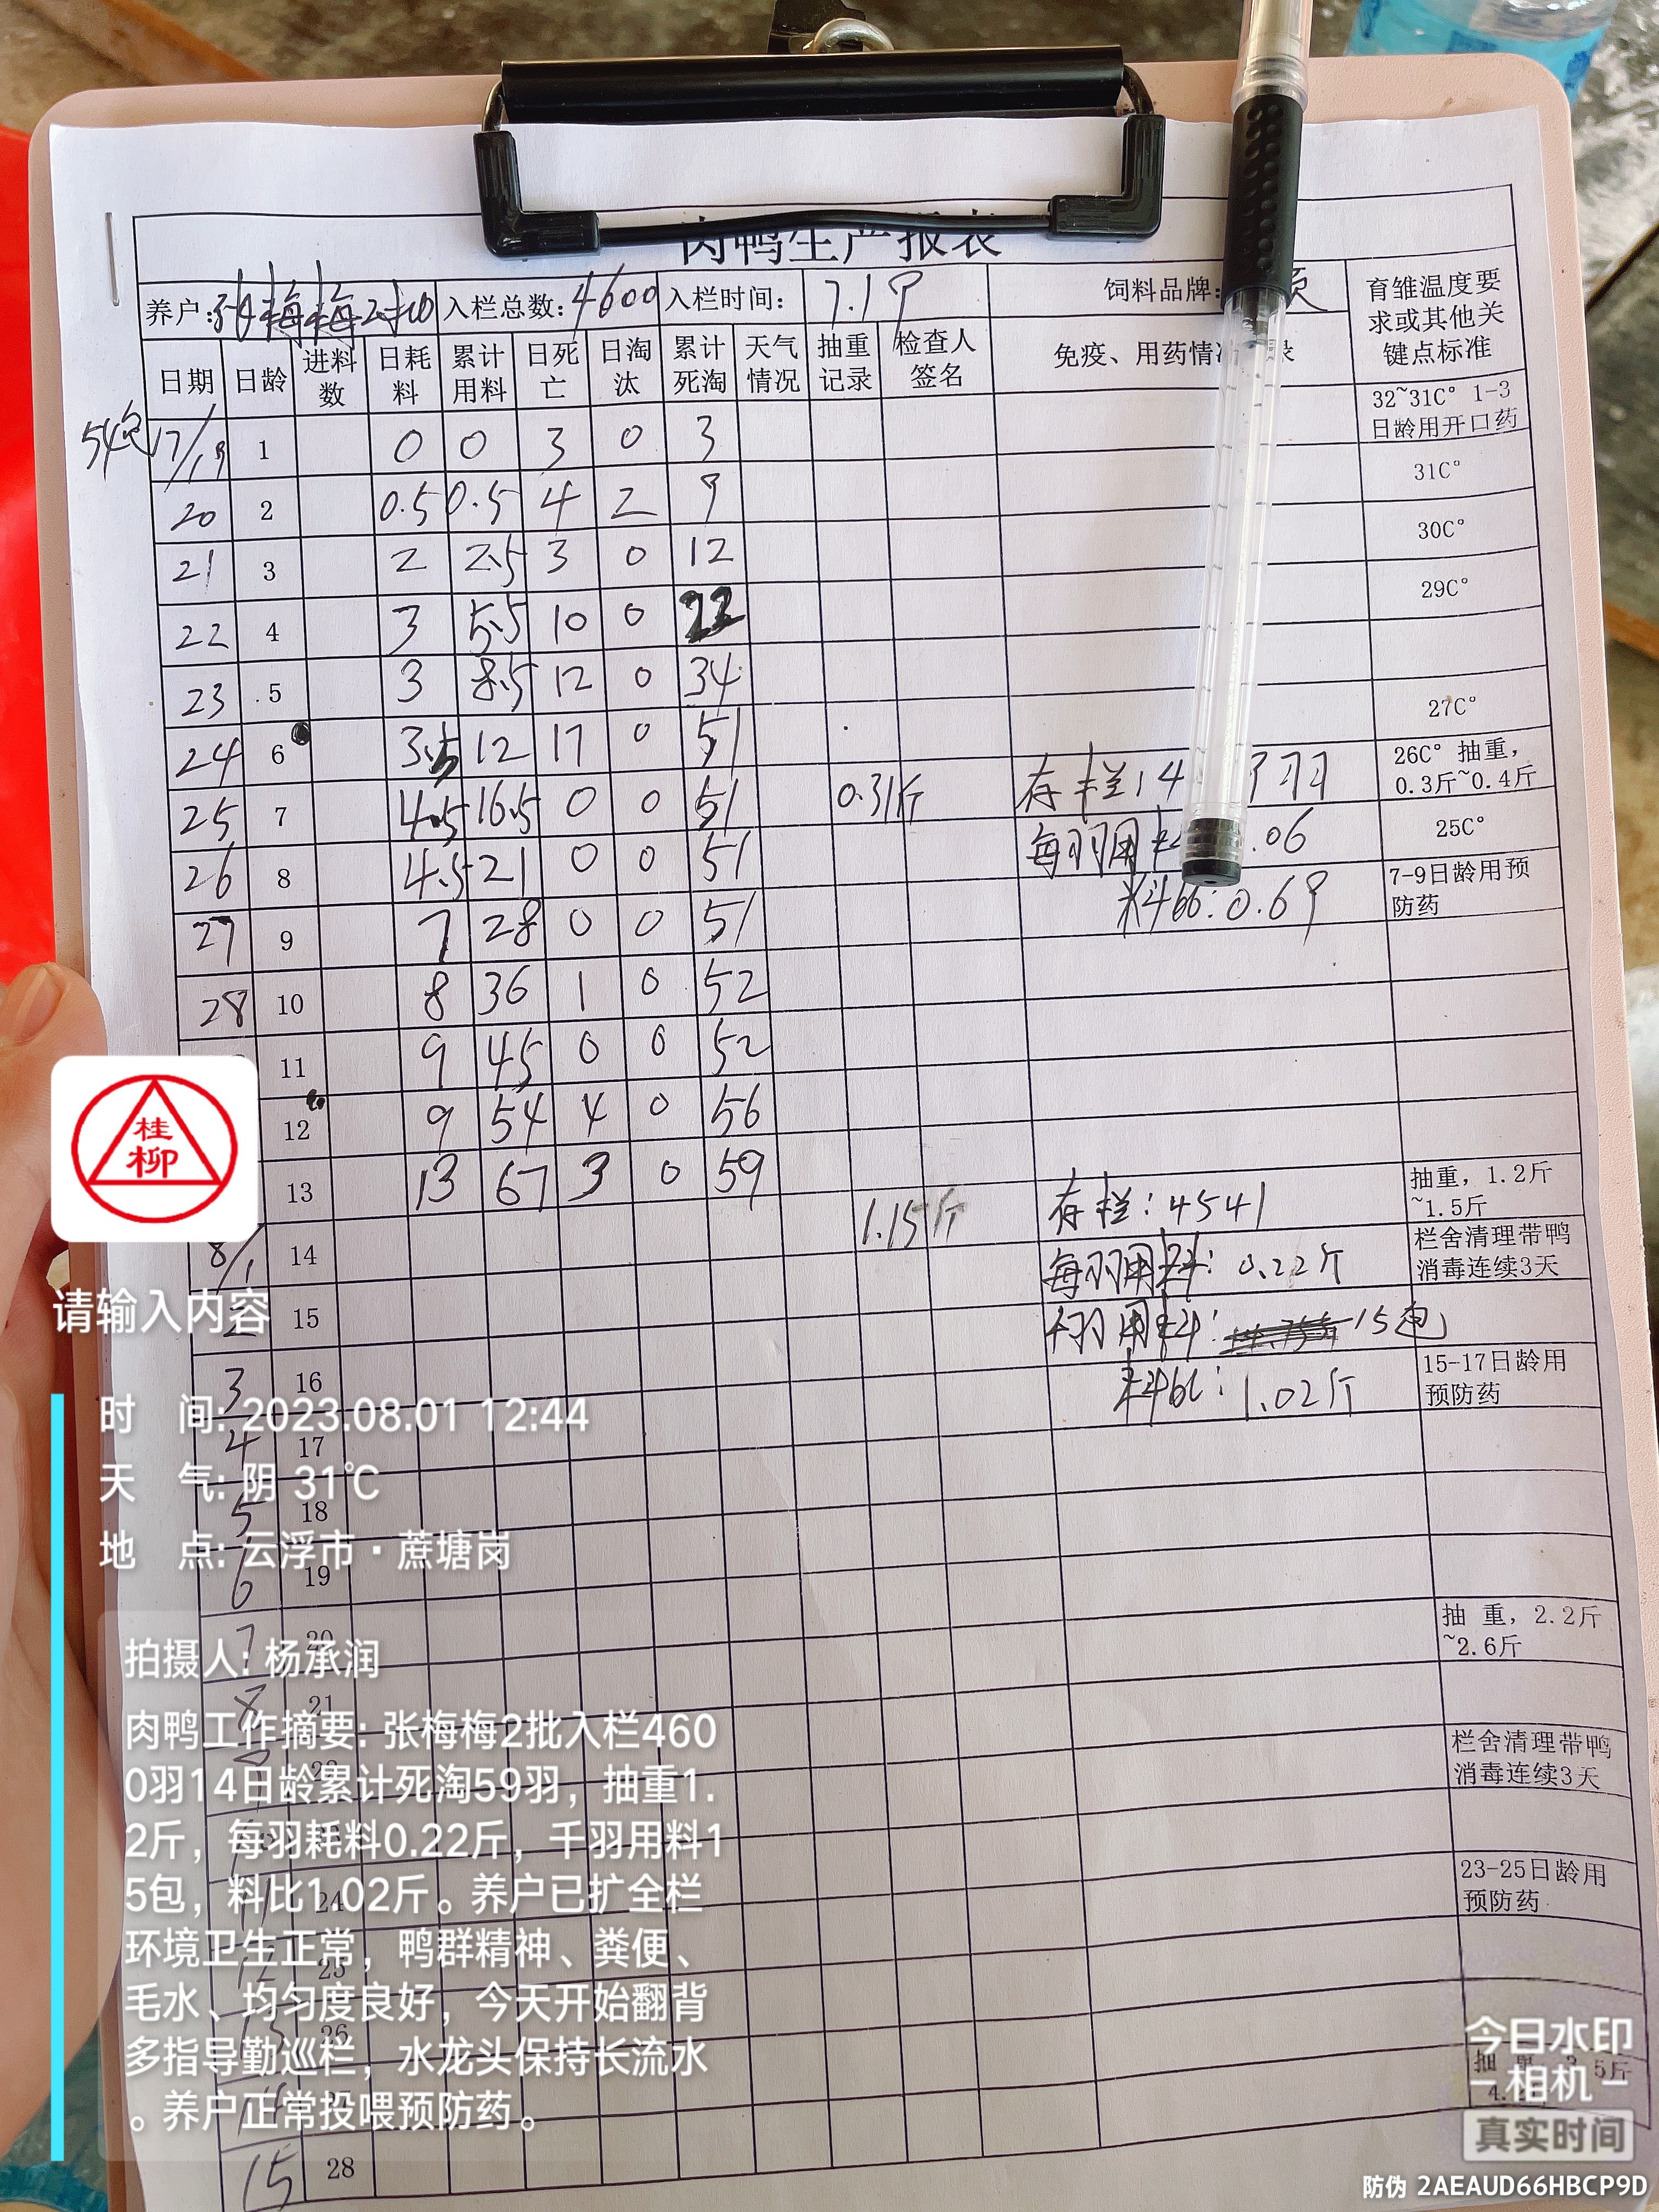 肉鸭生产报表
养户:张梅梅2批 入栏总数:4600 入栏时间: 7.19 饲料品牌: 育雏温度要求或其他关键点标准
日期 日龄 进料数 日耗料 累计用料 日死亡 日淘汰 累计死淘 天气情况 抽重记录 检查人签名 免疫、用药情 录
54包 17/19 1 0 0 3 0 3 32~31C° 1-3日龄用开口药
20 2 0.5 0.5 4 2 9 31C°
21 3 2 2.5 3 0 12 30C°
22 4 3 5.5 10 0 22 29C°
23 5 3 8.5 12 0 34
24 6 3.5 12 17 0 51 27C°
25 7 4.5 16.5 0 0 51 0.31斤 存栏:4 羽 26C° 抽重,0.3斤~0.4斤
26 8 4.5 21 0 0 51 每羽用料 .06 25C°
27 9 7 28 0 0 51 料比:0.69 7-9日龄用预防药
28 10 8 36 1 0 52
11 9 45 0 0 52
12 9 54 4 0 56
13 13 67 3 0 59
8/1 14 1.15斤 存栏:4541 抽重,1.2斤~1.5斤
2 15 每羽用料:0.22斤 栏舍清理带鸭消毒连续3天
千羽用料: 15包
3 16 料比:1.02斤 15-17日龄用预防药
4 17
5 18
6 19
7 20 抽 重,2.2斤~2.6斤
8 21
22 栏舍清理带鸭消毒连续3天
24 23-25日龄用预防药
12 25
13 26
15 28
桂柳
请输入内容
时 间: 2023.08.01 12:44
天 气: 阴 31℃
地 点: 云浮市·蔗塘岗
拍摄人: 杨承润
肉鸭工作摘要: 张梅梅2批入栏460
0羽14日龄累计死淘59羽，抽重1.
2斤，每羽耗料0.22斤，千羽用料1
5包，料比1.02斤。养户已扩全栏
环境卫生正常，鸭群精神、粪便、
毛水、均匀度良好，今天开始翻背
多指导勤巡栏，水龙头保持长流水
。养户正常投喂预防药。
今日水印
相机
真实时间
防伪 2AEAUD66HBCP9D